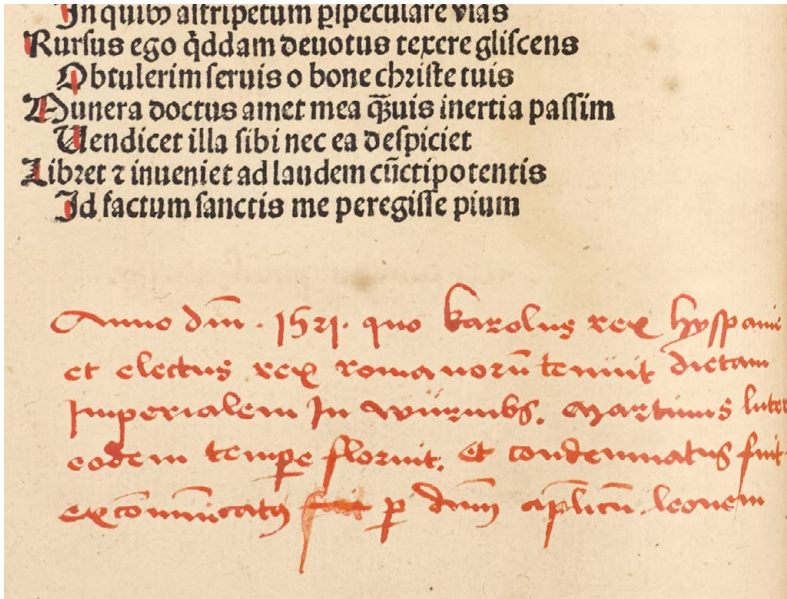 In quibꝰ astripetum p̲speculare vias
Rursus ego q̇ddam deuotus texere gliscens
Obtulerim seruis o bone christe tuis
Munera doctus amet mea q̃uis inertia passim
Uendicet illa sibi nec ea despiciet
Libret ⁊ inueniet ad laudem cūctipotentis
Id factum sanctis me peregisse pium
Anno dm̄ . 1521 . quo karolus rex hyspanie
et electus rex romanorū tenuit dietam
Imperialem In würmbs. Martinus luter
eodem tempꝑe floruit. Et condemnatus fuit
excōmūicatꝯ ꝑ dnm̄ ap̄licū . leonem